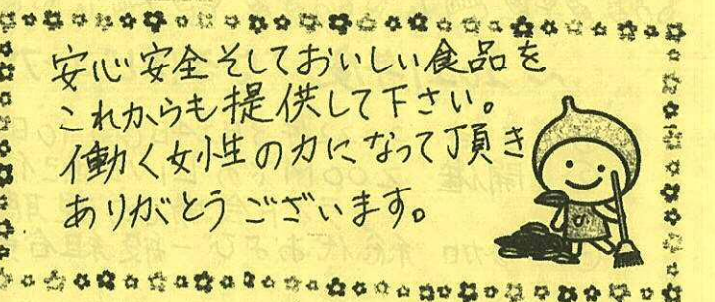 安心安全そしておいしい食品を
これからも提供して下さい。
働く女性の力になって頂き
ありがとうございます。